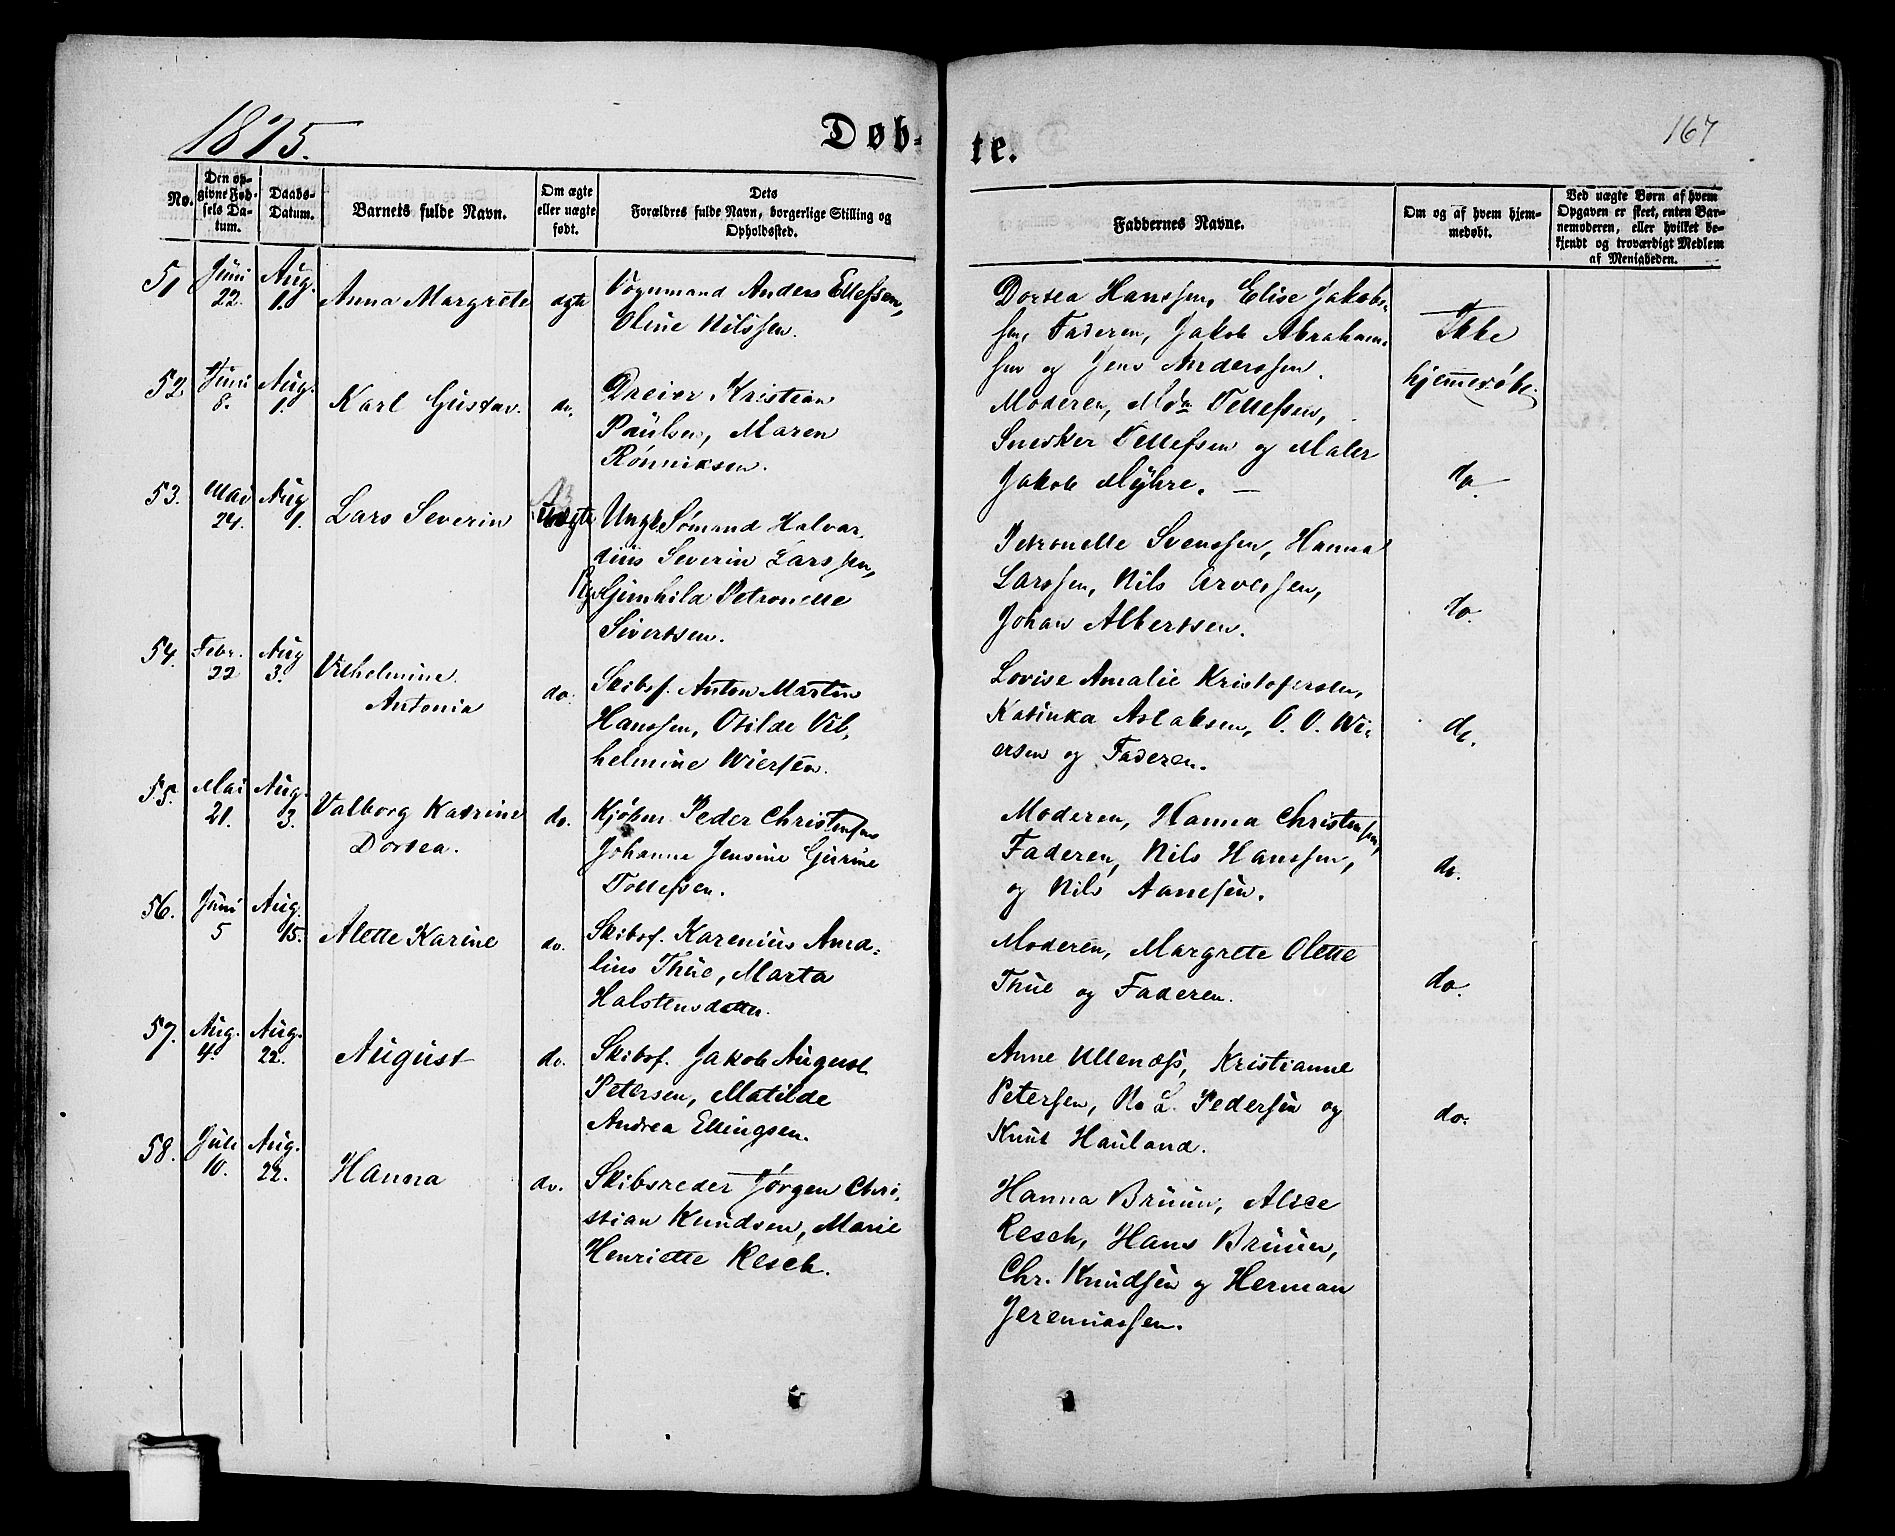 1875.
Døb-
te.
167
No.
Den op-
givne Fød-
sels Da-
tum.
Daabs-
Datum.
Barnets fulde Navn.
Om ægte
eller uægte
født.
Dets
Forældres fulde Navn, borgerlige Stilling og
Opholdssted.
Faddernes Navne.
Om og af hvem hjem-
medøbt.
Ved uægte Børn af hvem
Opgaven er skeet, enten Bar-
nemoderen, eller hvilket be-
kjendt og troværdigt Medlem
af Menigheden.
51 Juni 22. Aug. 1. Anna Margrete ægte
Vognmand Anders Ellefsen,
Oline Nilssen.
Dortea Hanssen, Elise Jakob-
sen, Faderen, Jakob Abraham-
sen og Jens Anderssen.
Ikke
hjemmedøbt.
52 Juni 8. Aug. 1. Karl Gustav. do.
Dreier Kristian
Paulsen, Maren
Rønniksen.
Moderen, Mdm Tellefsen,
Snedker Tellefsen og Maler
Jakob Myhre. —
do.
53. Mai 24. Aug 1. Lars Severin
Ungk. Sømand Halvar
dius Severin Larssen,
Gjunhild Petronelle
Sivertsen.
Petronelle Svenssen, Hanna
Larssen, Nils Arvessen,
Johan Albertsen.
do.
54. Febr. 22 Aug 3. Vilhelmine
Antonia do.
Skibsf. Anton Martin
Hanssen, Otilde Vil,
helmine Wiersen.
Lovise Amalie Kristofersen,
Katinka Aslaksen, O. O. Wi-
ersen og Faderen.
do.
55. Mai 21. Aug. 3. Valborg Katrine
Dortea. do.
Kjøbm. Peder Christensen
Johanne Jensine Gurine
Tollefsen.
Moderen, Hanna Christensen,
Faderen, Nils Hanssen,
og Nils Aanesen.
do.
56. Juni 5 Aug. 15. Alette Karine do.
Skibsf. Karenius Ama-
lius Thue, Marta
Halstensdatter.
Moderen, Margrete Olette
Thue og Faderen.
do.
57. Aug. 4. Aug. 22. August do.
Skibsf. Jakob August
Petersen, Matilde
Andrea Ellingsen.
Anne Ullenæss, Kristianne
Petersen, N. L. Pedersen og
Knut Hauland.
do.
58. Juli 10. Aug. 22. Hanna do.
Skibsreder Jørgen Chri,
stian Knudsen, Marie
Henriette Resch.
Hanna Bruun, Alice
Resch, Hans Bruun,
Chr. Knudsen og Herman
Jeremiassen.